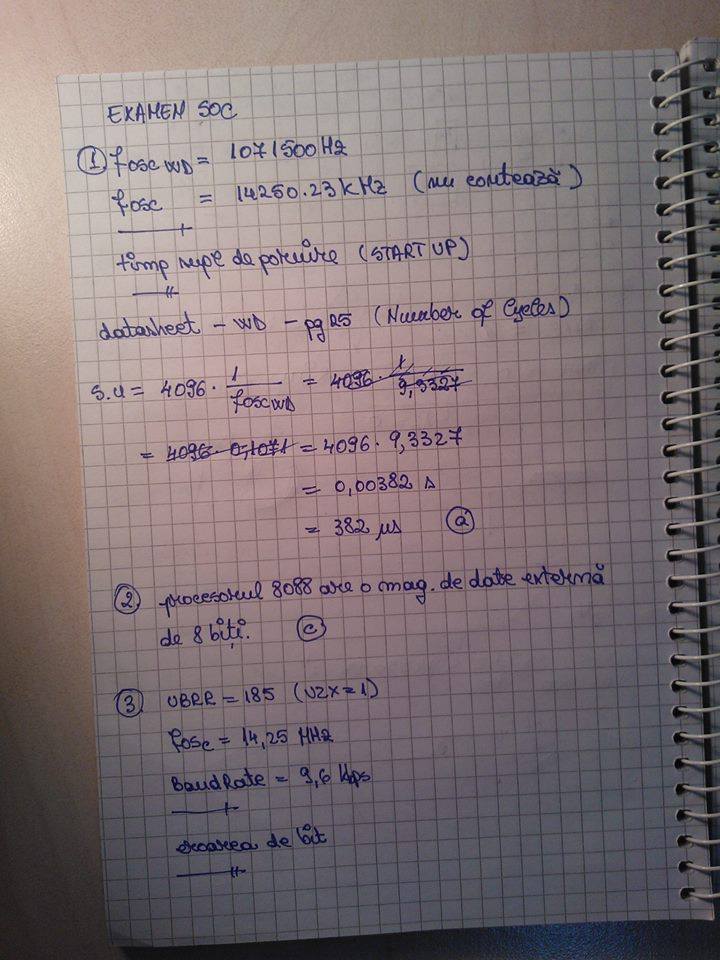 EXAMEN SOC
① fosc WD = 1071500 Hz
fosc = 14250.23 kHz (nu contează)
timp de pornire (START UP)
datasheet - WD - pg 25 (Number of Cycles)
S.U = 4096 · 1/foscWD = 4096 · 1/9,3327
= 4096 · 0,1071 = 4096 · 9,3327
= 0,00382 s
= 382 µs ⓐ
② procesorul 8088 are o mag. de date externă
de 8 biți. ⓒ
③ UBRR = 185 (U2X=1)
fosc = 14,25 MHz
BaudRate = 9,6 kbps
eroarea de bit